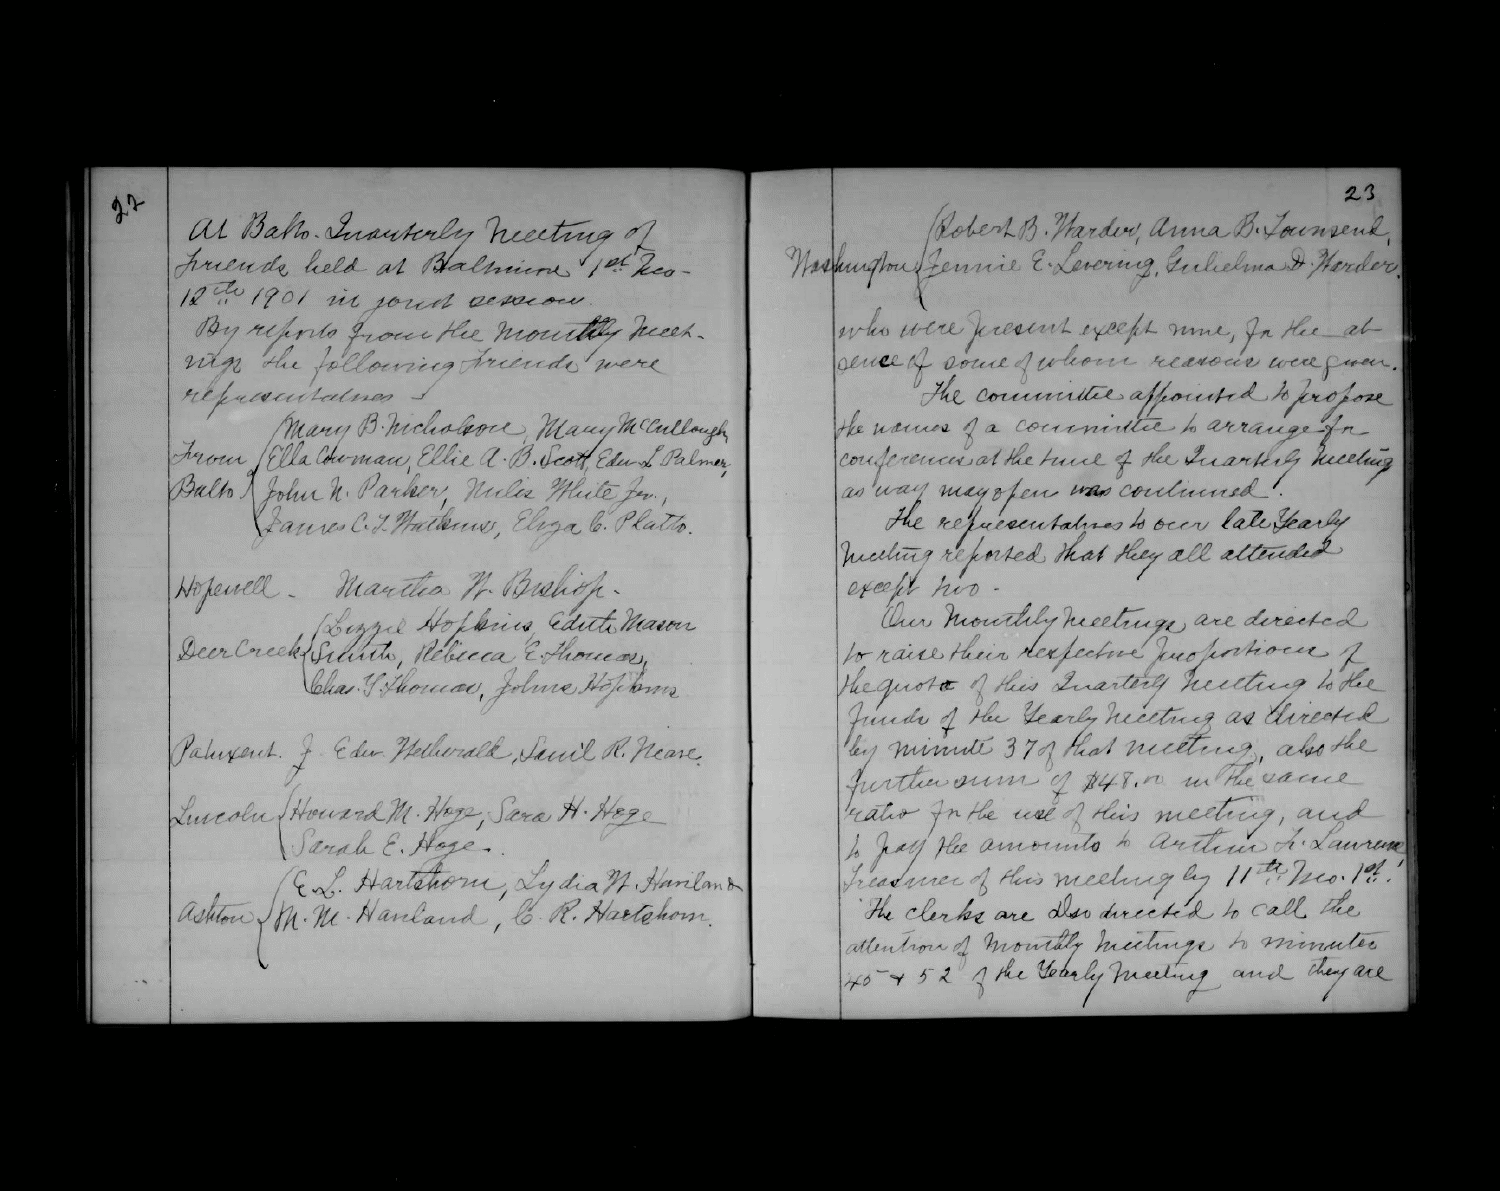 22
At Balto. Quarterly Meeting of
Friends held at Baltimore 1st Mo-
12th 1901 in joint session.
By reports from the Monthly Meet-
ings the following Friends were
representatives -
Mary B. Nicholson, Mary McCullough,
From Ella Cowman, Ellie A. B. Scott, Edw. L. Palmer,
Balto John N. Parker, Miles White Jr.,
James C. T. Watkins, Eliza C. Platt.
Hopewell - Martha W. Bishop -
Lizzie Hopkins, Edith Mason
Deer Creek Smith, Rebecca E. Thomas,
Chas. Y. Thomas, Johns Hopkins
Patuxent. J. Edw. Wetherald, Saml R. Neave.
Lincoln Howard M. Hoge, Sara H. Hoge
Sarah E. Hoge.
E. L. Hartshorn, Lydia W. Haviland
Ashton M. M. Haviland, C. R. Hartshorn.
23
Robert B. Warder, Anna B. Townsend,
Washington Jennie E. Levering, Gulielma D. Warder.
who were present except nine, for the ab
sence of some of whom reasons were given.
The committee appointed to propose
the names of a committee to arrange for
conferences at the time of the Quarterly Meeting
as way may open was continued.
The representatives to our late Yearly
Meeting reported that they all attended
except two -
Our Monthly Meetings are directed
to raise their respective proportions of
the quota of this Quarterly Meeting to the
funds of the Yearly Meeting as directed
by minute 37 of that meeting, also the
further sum of $48.00 in the same
ratio for the use of this meeting, and
to pay the amounts to Arthur Lawrence,
Treasurer of this meeting by 11th Mo. 1st.
The clerks are also directed to call the
attention of Monthly Meetings to minutes
45 & 52 of the Yearly Meeting and they are